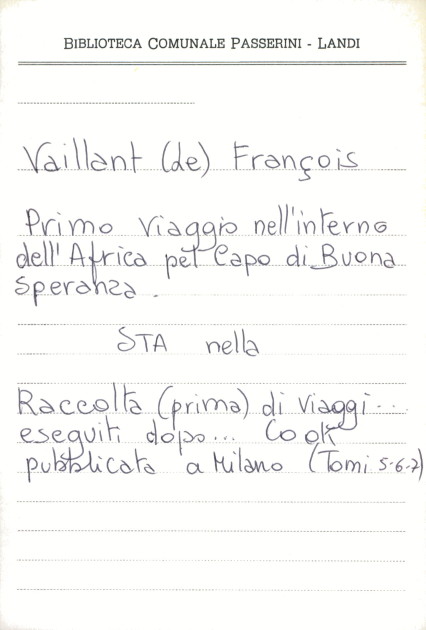 BIBLIOTECA COMUNALE PASSERINI - LANDI
Vaillant (de) François
Primo Viaggio nell'interno
dell'Africa pel Capo di Buona
Speranza.
STA nella
Raccolta (prima) di Viaggi...
eseguiti dopo... Cook
pubblicata a Milano (Tomi 5-6-7)